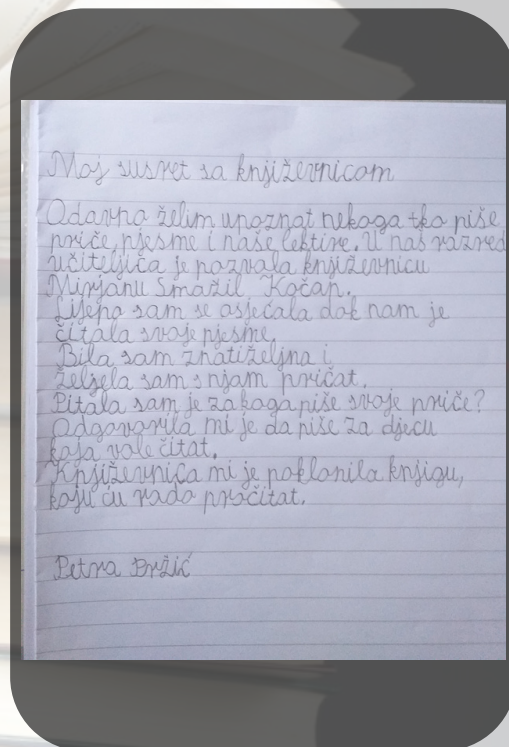 Moj susret sa književnicom
Odavno želim upoznat nekoga tko piše
priče, pjesme i naše lektire. U naš razred
učiteljica je pozvala književnicu
Mirjanu Smažil Kočan.
Lijepo sam se osjećala dok nam je
čitala svoje pjesme.
Bila sam znatiželjna i
željela sam s njom pričat.
Pitala sam je za koga piše svoje priče?
Odgovorila mi je da piše za djecu
koja vole čitat.
Književnica mi je poklonila knjigu,
koju ću rado pročitat.
Petra Držić